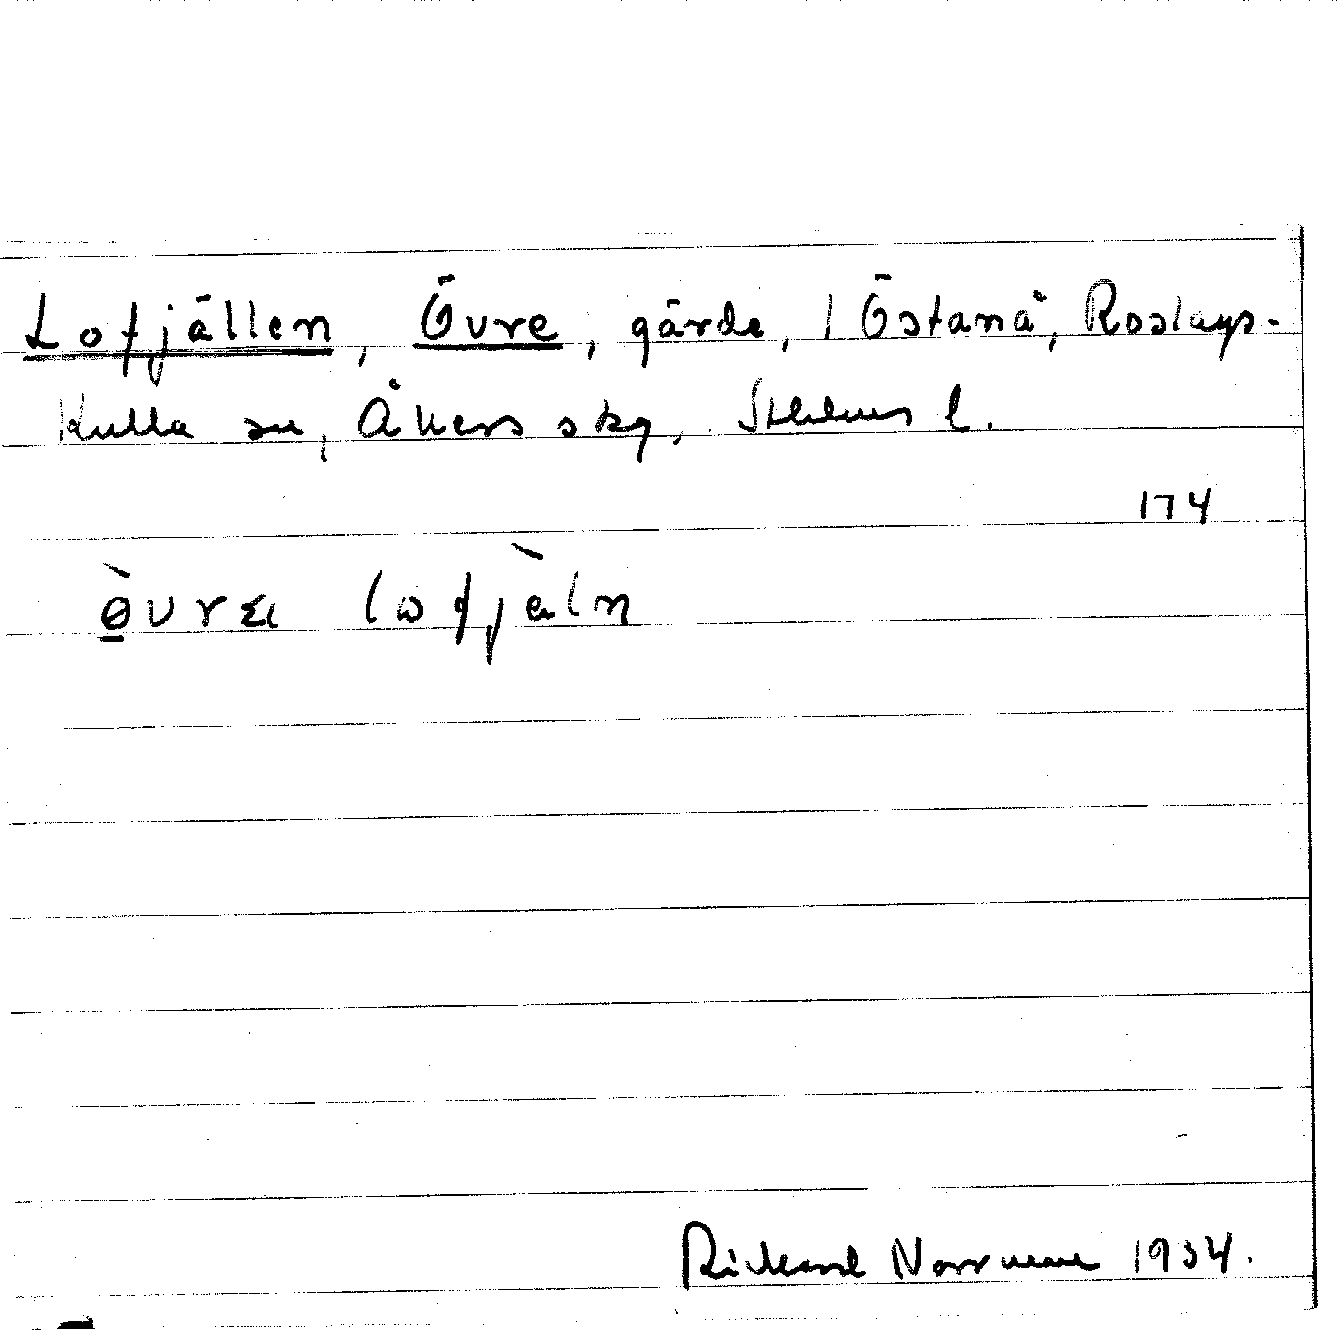 Lofjällen, Övre, gärde, i Östanå, Roslags-
Kulla sn, Åkers skg, Sthlms l.
174
Richard Norrman 1934.